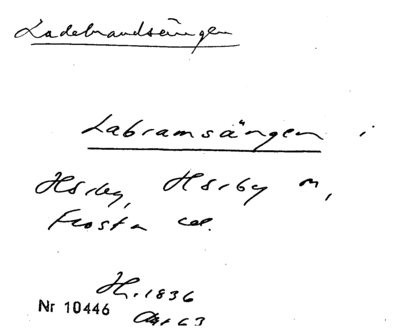 Ladebrandsängen
Labramsängen i
Hörby, Hörby sn,
Frosta hd.
H. 1836
Nr 10446
Akt 63